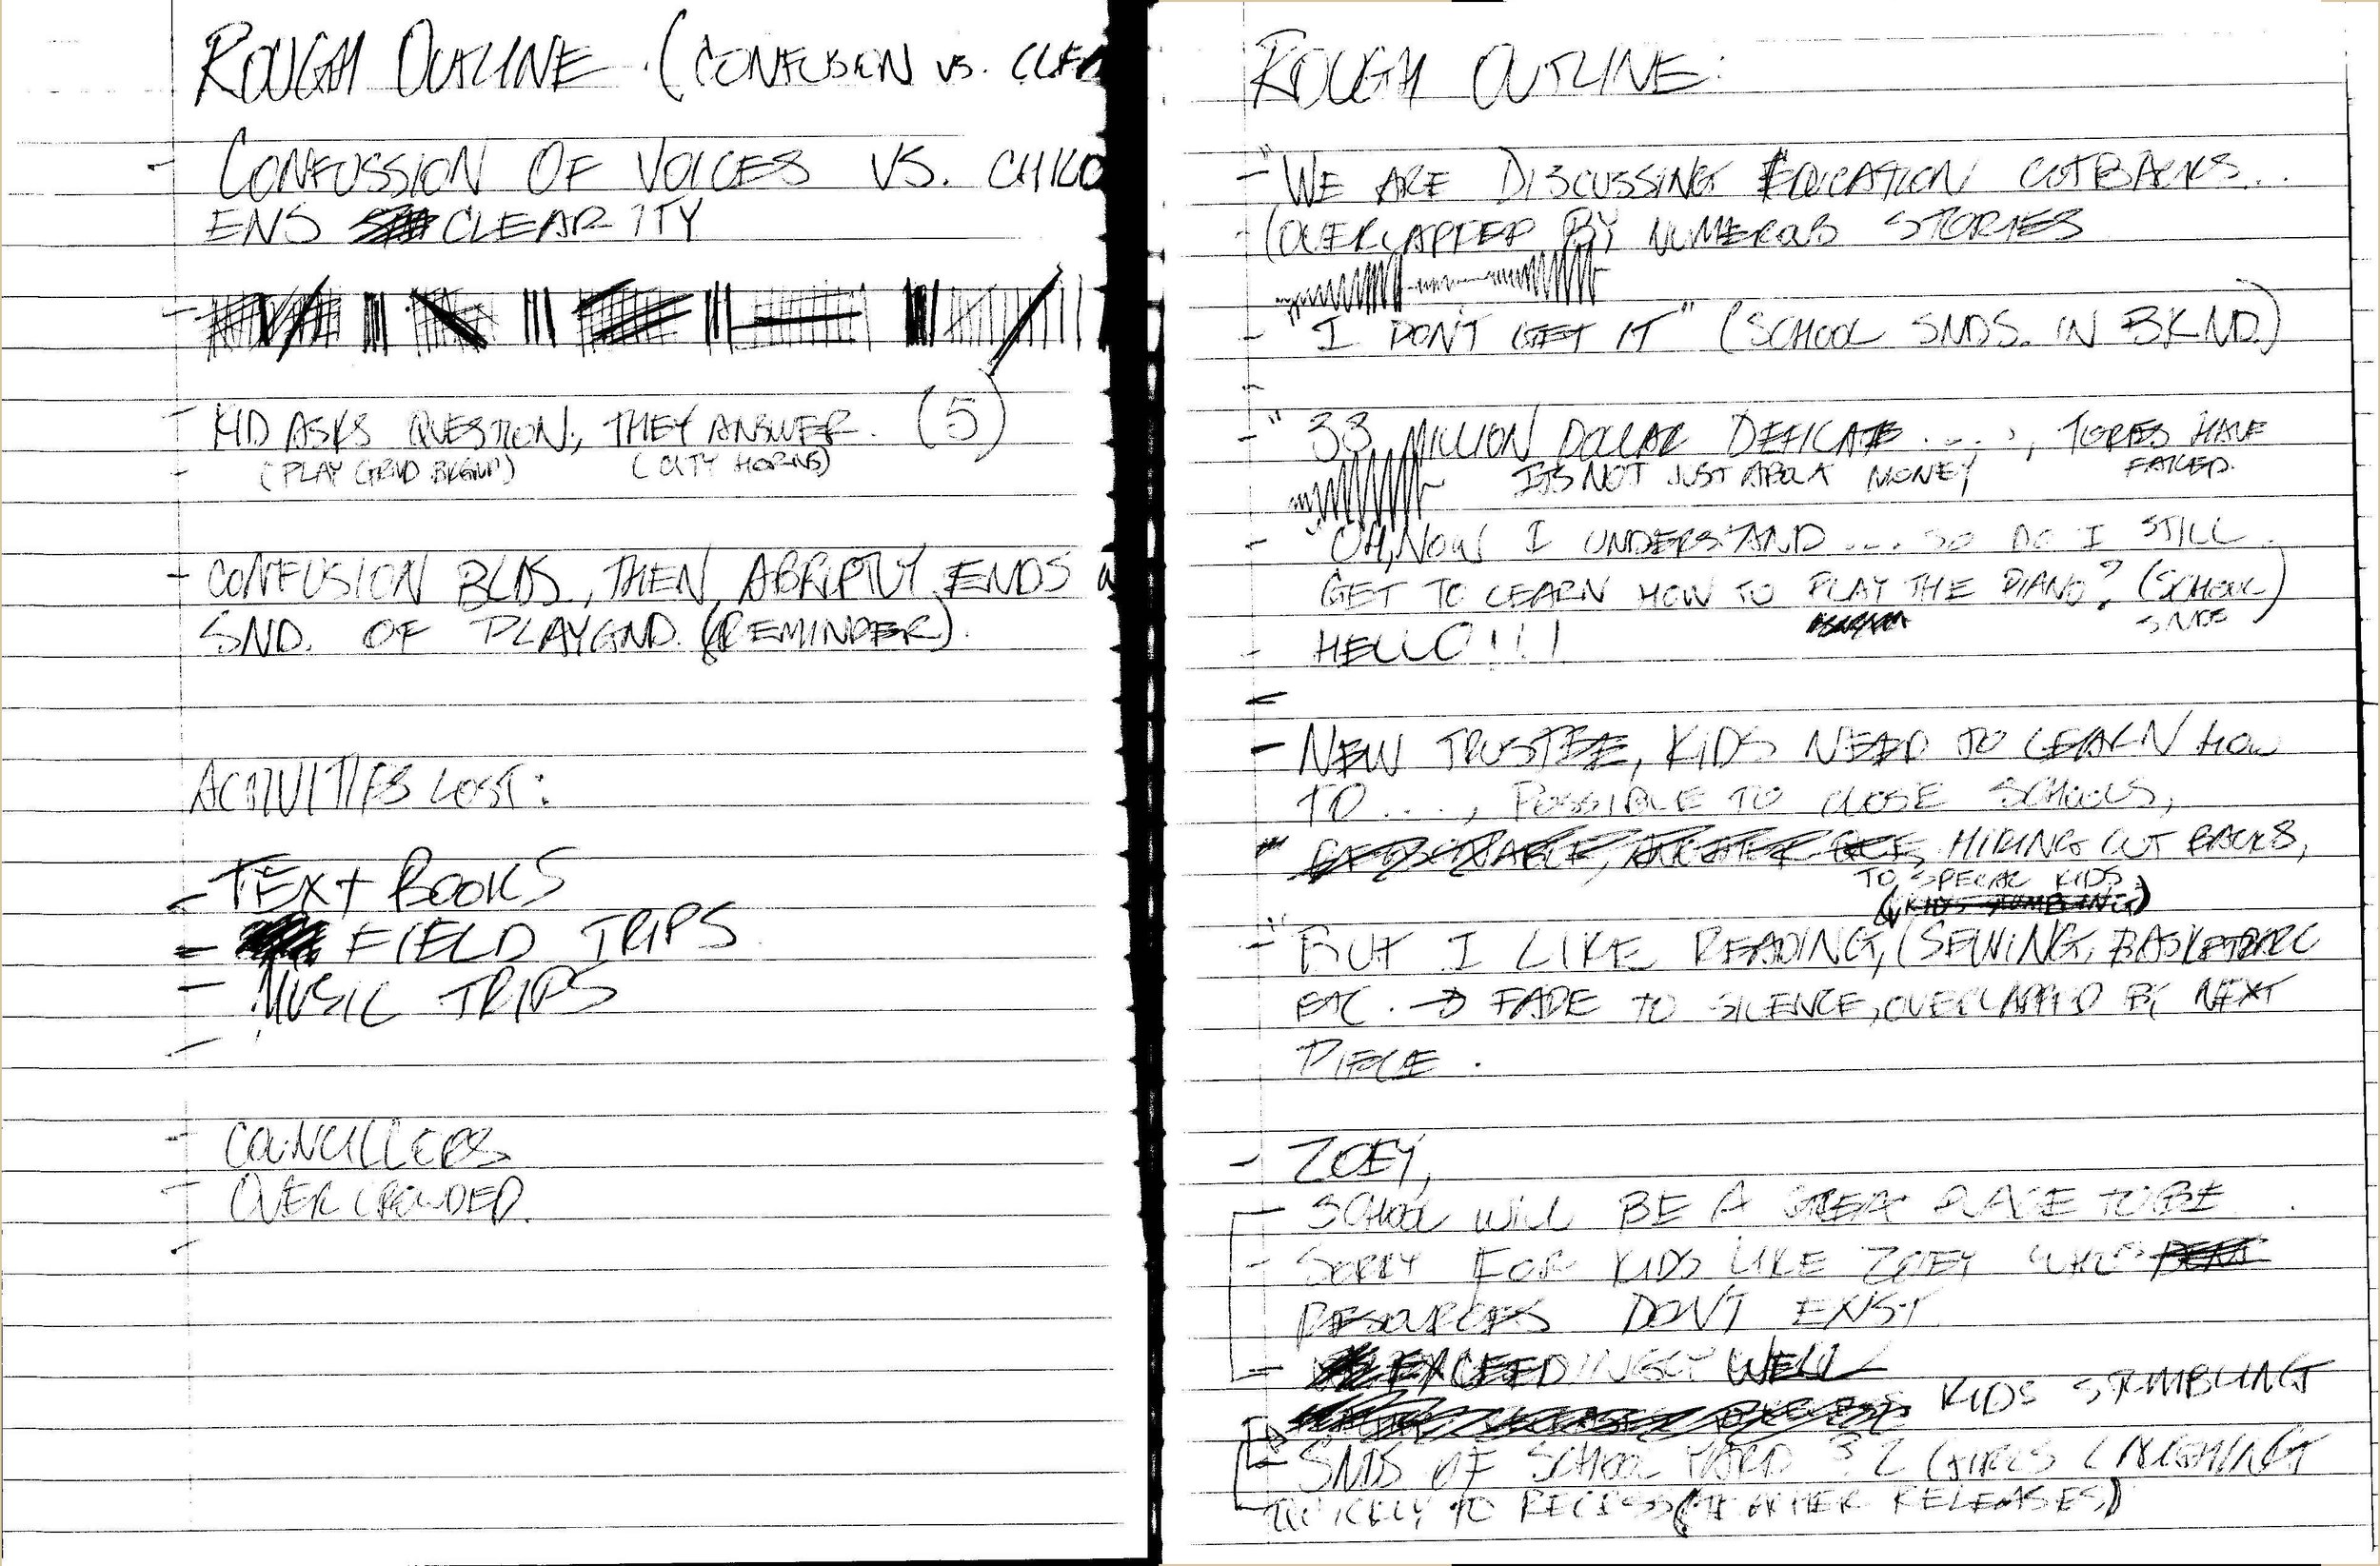 ROUGH OUTLINE (CONFUSION VS. CLEA
- CONFUSSION OF VOICES VS. CHILD
ENS CLEARITY
- KID ASKS QUESTION, THEY ANSWER. (5)
- (PLAY GRND BKGND) (CITY HORNS)
- CONFUSION BLDS, THEN ABRIPTLY ENDS
SND. OF PLAYGND. (REMINDER).
ACTIVITIES LOST:
- TEXT BOOKS
- FIELD TRIPS
- MUSIC TRIPS
-
- COUNCILLERS
- OVER CROWDED.
-
ROUGH OUTLINE:
- "WE ARE DISCUSSING EDUCATION CUTBACKS...
- (OVERLAPPED BY NUMEROUS STORIES
- "I DON'T GET IT" (SCHOOL SNDS. IN BKND.)
- "33 MILLION DOLLAR DEFICATE ...., TORIES HAVE
ITS NOT JUST ABOUT MONEY FAILED.
- "OH, NOW I UNDERSTAND .... SO DO I STILL
GET TO LEARN HOW TO PLAY THE PIANO? (SCHOOL)
SNDS
- HELLO!!!
- NEW TRUSTEE, KIDS NEED TO LEARN HOW
TO ..., POSSIBLE TO CLOSE SCHOOLS,
HIRING CUT BACKS,
TO SPECIAL KIDS
- "BUT I LIKE READING, (SEWING, BASKETBALL
ETC. → FADE TO SILENCE, OVERLAPPED BY NEXT
PIECE.
- ZOEY,
- SCHOOL WILL BE A GREAT PLACE TO BE
- SORRY FOR KIDS LIKE ZOEY
RESOURCES DON'T EXIST
- EXCEEDINGLY WELL
KIDS STUMBLING
- SNDS OF SCHOOL YARD 2 GIRLS LAUGHING
QUICKLY TO RECESS (TEACHER RELEASES)